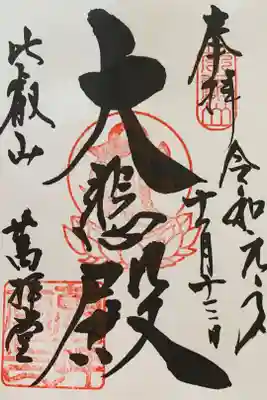 奉拝
令和元年
十一月十三日
大悲殿
比叡山
萬拝堂